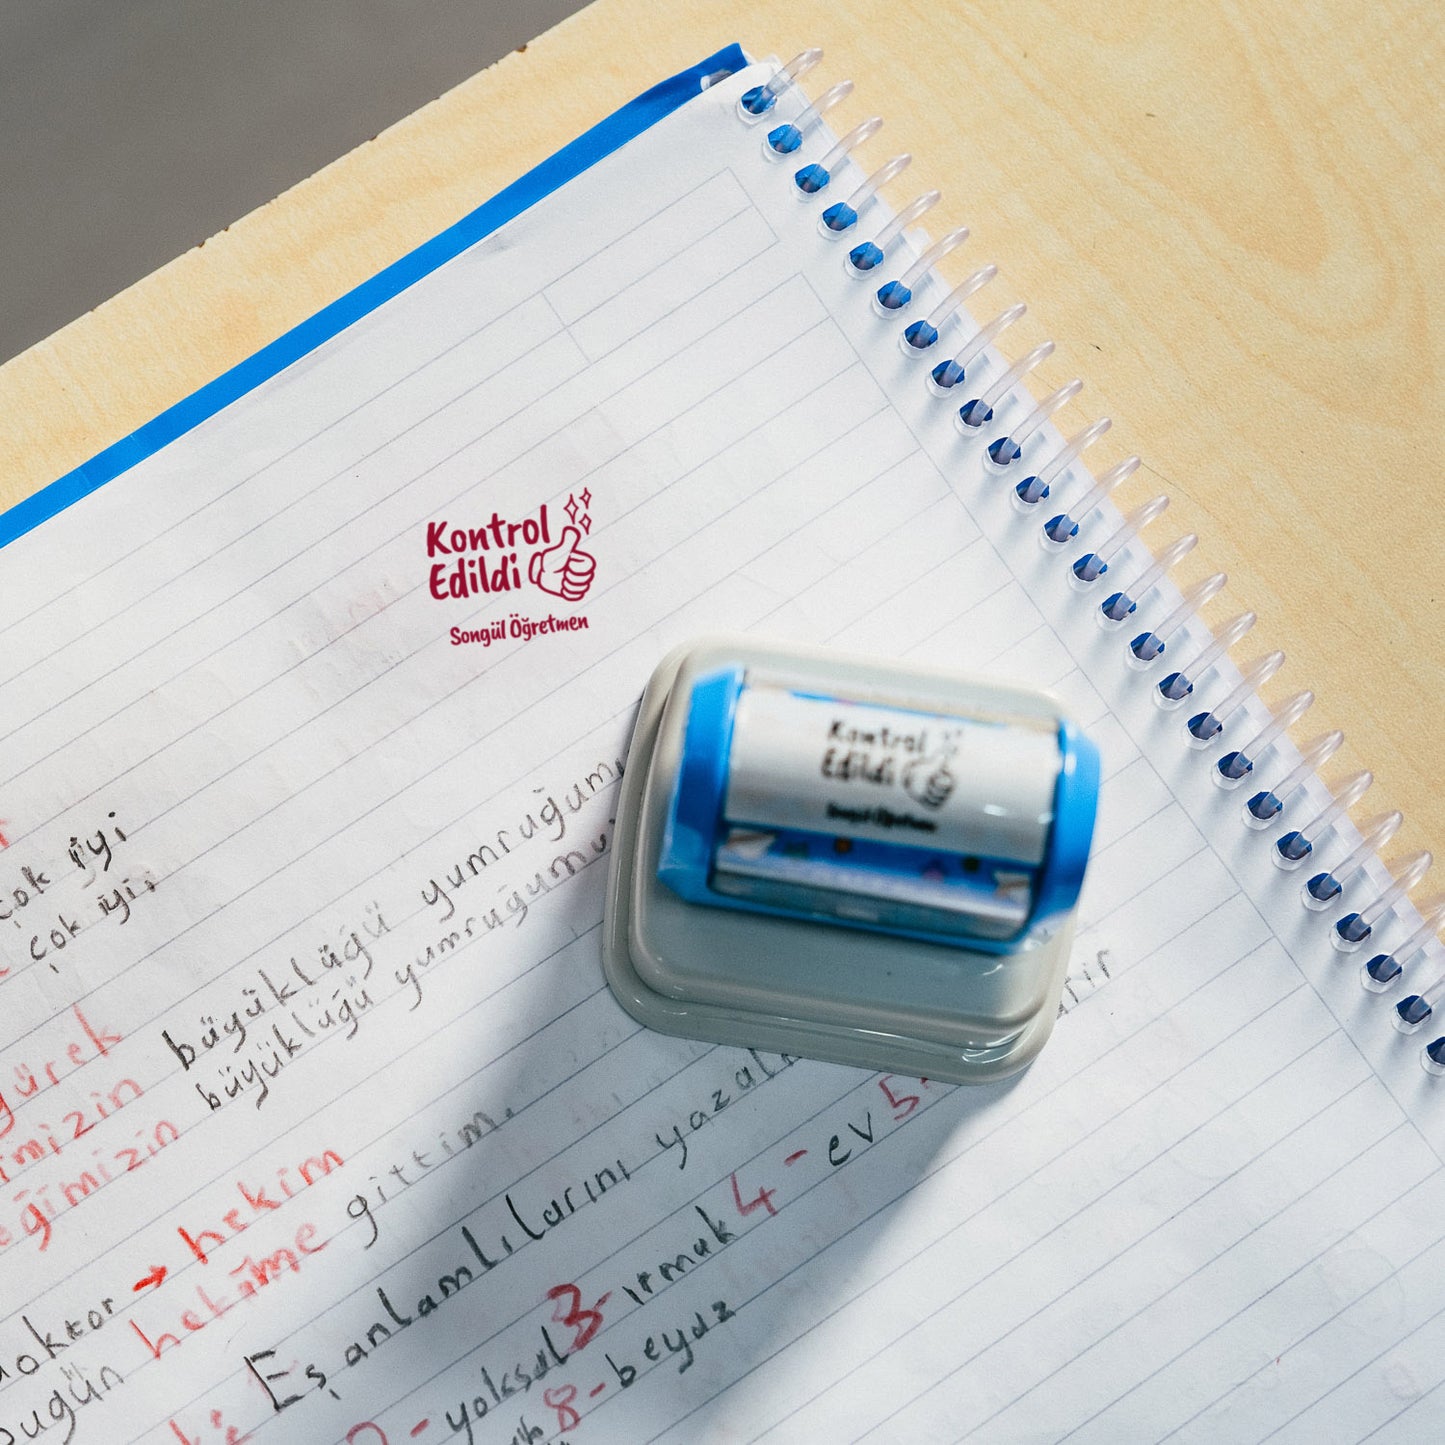 Kontrol
Edildi
Songül Öğretmen
Kontrol
Edildi
Songül Öğretmen
çok iyi
çok iyi.
büyüklüğü yumruğum
büyüklüğü yumruğumu
hekim
doktor → hekim
bugün hekime gittim.
Eş anlamlılarını yazal
yoksul 3- ırmak 4 - ev 5
8 - beyaz